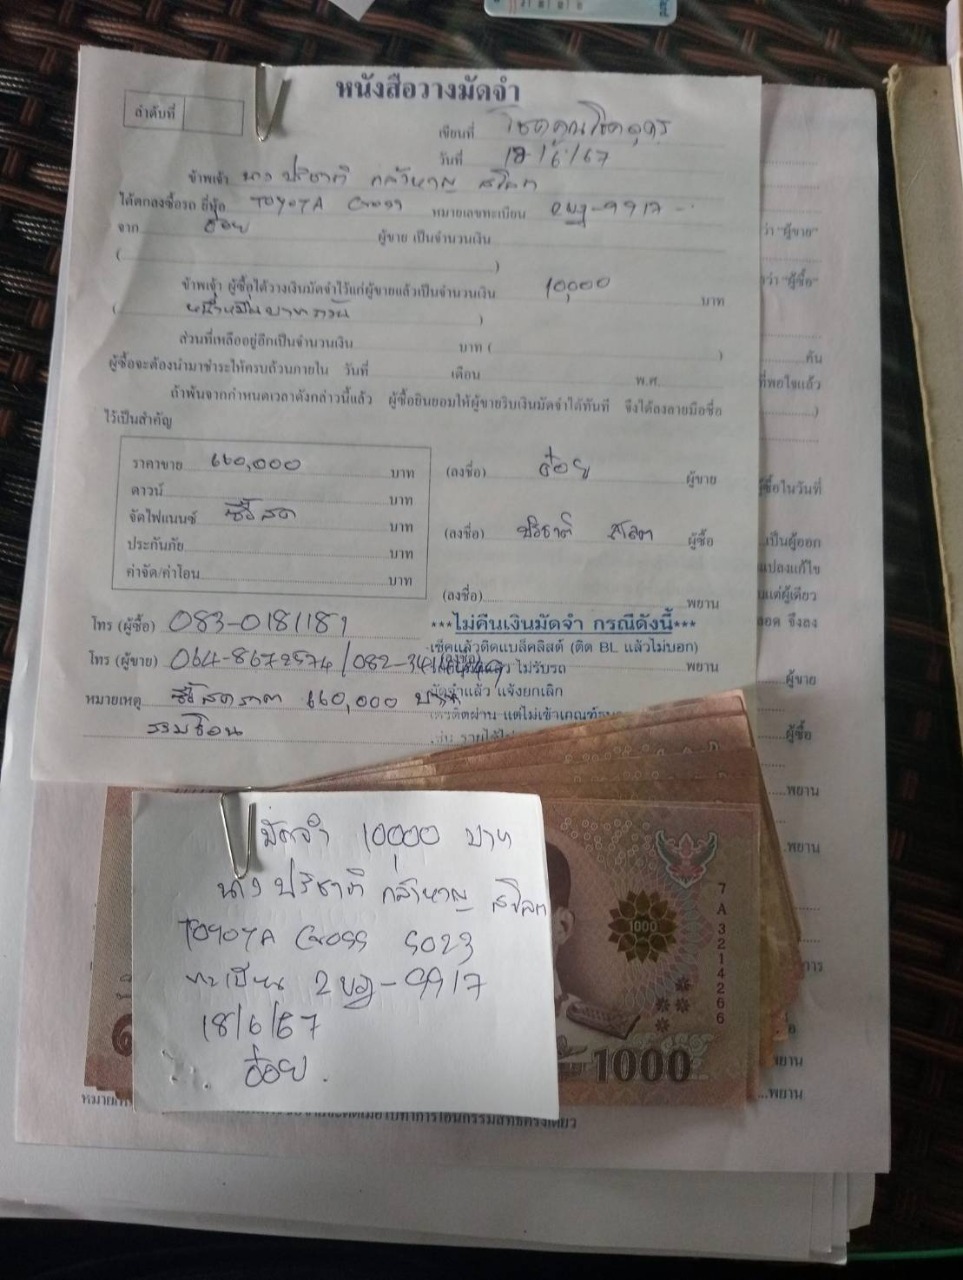 หนังสือวางมัดจำ
ลำดับที่
เขียนที่ โชคคูณโชคอุดร
วันที่ 18/6/67
ข้าพเจ้า นาง ปริชาติ กล้าหาญ สโลต
ได้ตกลงซื้อรถ ยี่ห้อ TOYOTA Cross หมายเลขทะเบียน 2ขฎ-9917
จาก อ้อย ผู้ขาย เป็นจำนวนเงิน
( )
ข้าพเจ้า ผู้ซื้อได้วางเงินมัดจำไว้แก่ผู้ขายแล้วเป็นจำนวนเงิน 10,000 บาท
( หนึ่งหมื่นบาทถ้วน )
ส่วนที่เหลืออยู่อีกเป็นจำนวนเงิน บาท ( )
ผู้ซื้อจะต้องนำมาชำระให้ครบถ้วนภายใน วันที่ เดือน พ.ศ.
ถ้าพ้นจากกำหนดเวลาดังกล่าวนี้แล้ว ผู้ซื้อยินยอมให้ผู้ขายริบเงินมัดจำได้ทันที จึงได้ลงลายมือชื่อ
ไว้เป็นสำคัญ
ราคาขาย 660,000 บาท
ดาวน์ บาท
จัดไฟแนนซ์ ซื้อสด บาท
ประกันภัย บาท
ค่าจัด/ค่าโอน บาท
(ลงชื่อ) อ้อย ผู้ขาย
(ลงชื่อ) ปริชาติ สโลต ผู้ซื้อ
(ลงชื่อ) พยาน
พยาน
โทร (ผู้ซื้อ) 083-0181181
***ไม่คืนเงินมัดจำ กรณีดังนี้***
เช็คแล้วติดแบล็คลิสต์ (ติด BL แล้วไม่บอก)
โทร (ผู้ขาย) 064-8672574
ไม่รับรถ
มัดจำแล้ว แจ้งยกเลิก
หมายเหตุ ซื้อสดราคา 660,000 บาท
รวมโอน
ว่า "ผู้ขาย"
ว่า "ผู้ซื้อ"
คัน
ที่พอใจแล้ว
ผู้ซื้อในวันที่
เป็นผู้ออก
แปลงแก้ไข
แต่ผู้เดียว
จึงลง
ผู้ขาย
ผู้ซื้อ
พยาน
พยาน
มัดจำ 10,000 บาท
นาง ปริชาติ กล้าหาญ สโลต
TOYOTA Cross 5023
ทะเบียน 2ขฎ-9917
18/6/67
อ้อย
7A3214266
1000
1000
พยาน
พยาน